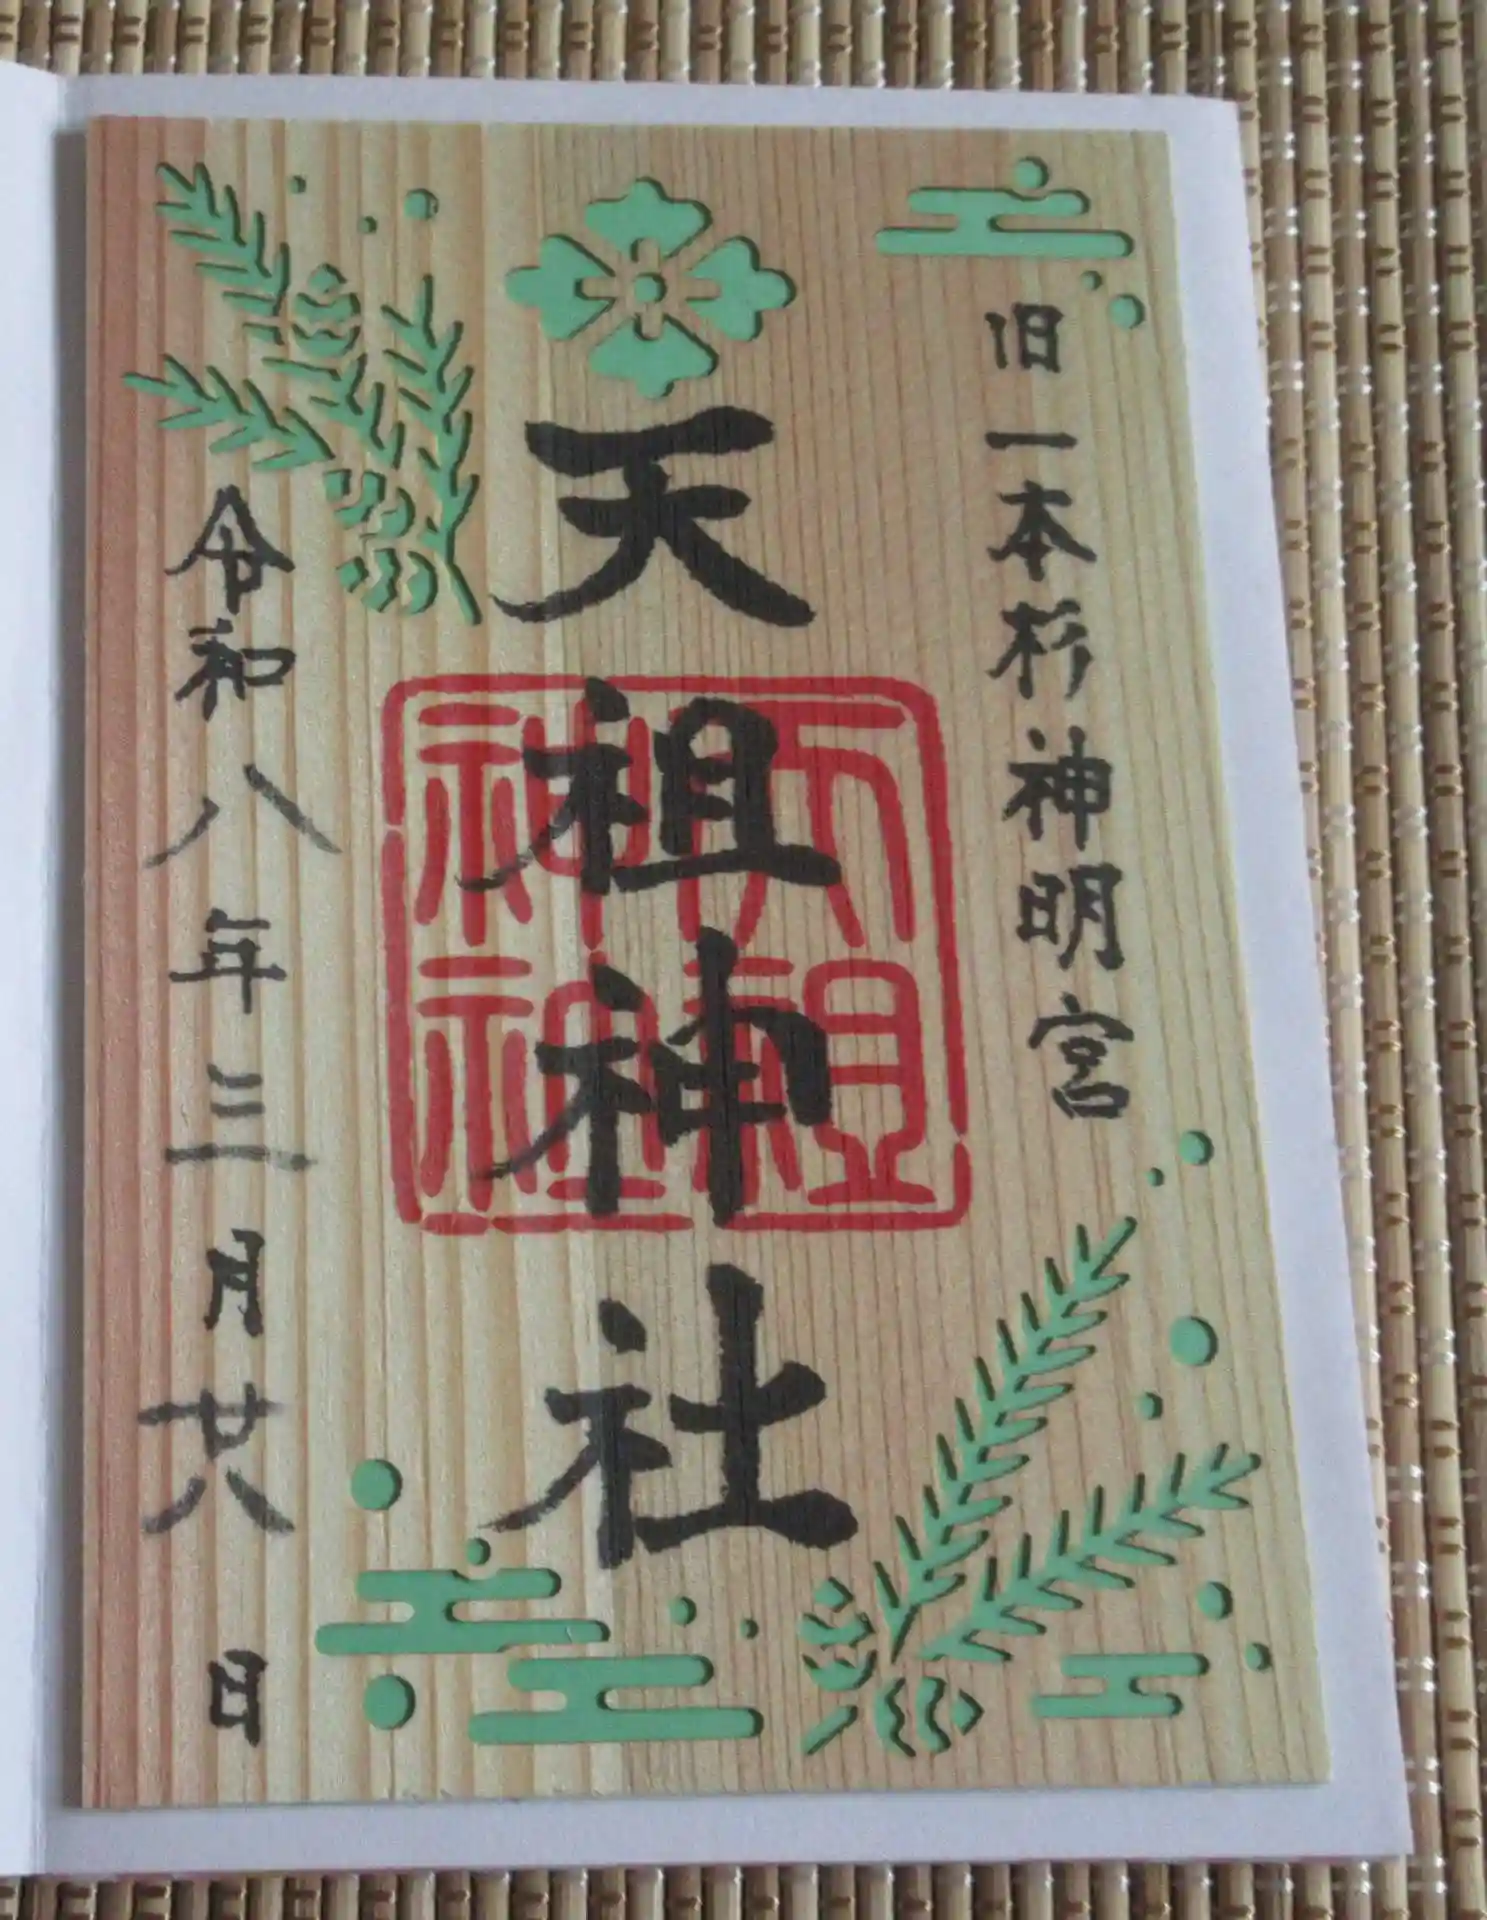 旧一本杉神明宮
天祖神社
天祖
神社
令和八年三月廿八日